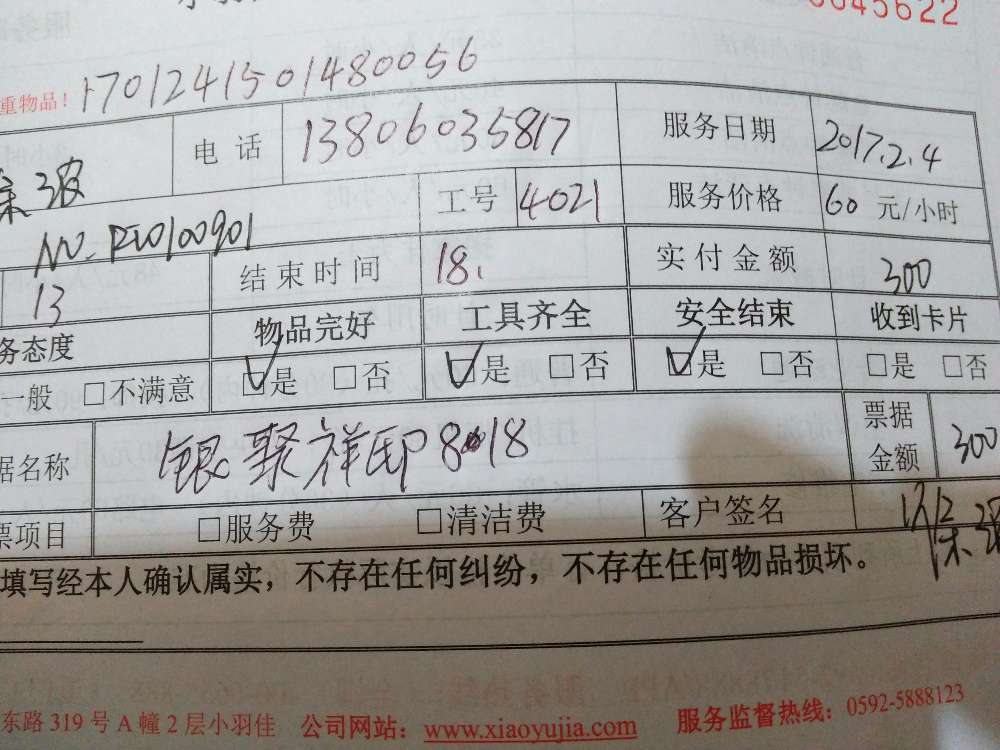 0045622
重物品! 1701241501480056
电话 13806035817 服务日期 2017.2.4
工号 4021 服务价格 60 元/小时
13 结束时间 18. 实付金额 300
务态度 物品完好 工具齐全 安全结束 收到卡片
一般 □不满意 ☑是 □否 ☑是 □否 ☑是 □否 □是 □否
据名称 银聚祥邸8#018 票据金额 300
票项目 □服务费 □清洁费 客户签名
填写经本人确认属实，不存在任何纠纷，不存在任何物品损坏。
东路 319 号 A 幢 2 层小羽佳 公司网站：www.xiaoyujia.com 服务监督热线：0592-5888123